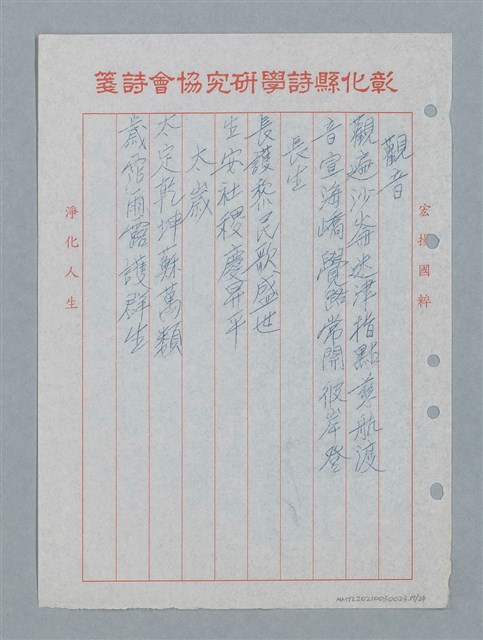 彰化縣詩學研究協會詩箋
宏揚國粹
觀音
觀遍沙崙迷津指點慈航渡
音宣海嶠覺路常開彼岸登
長生
長護黎民歌盛世
生安社稷慶昇平
太歲
太定乾坤蘇萬類
歲霑甫露護群生
淨化人生